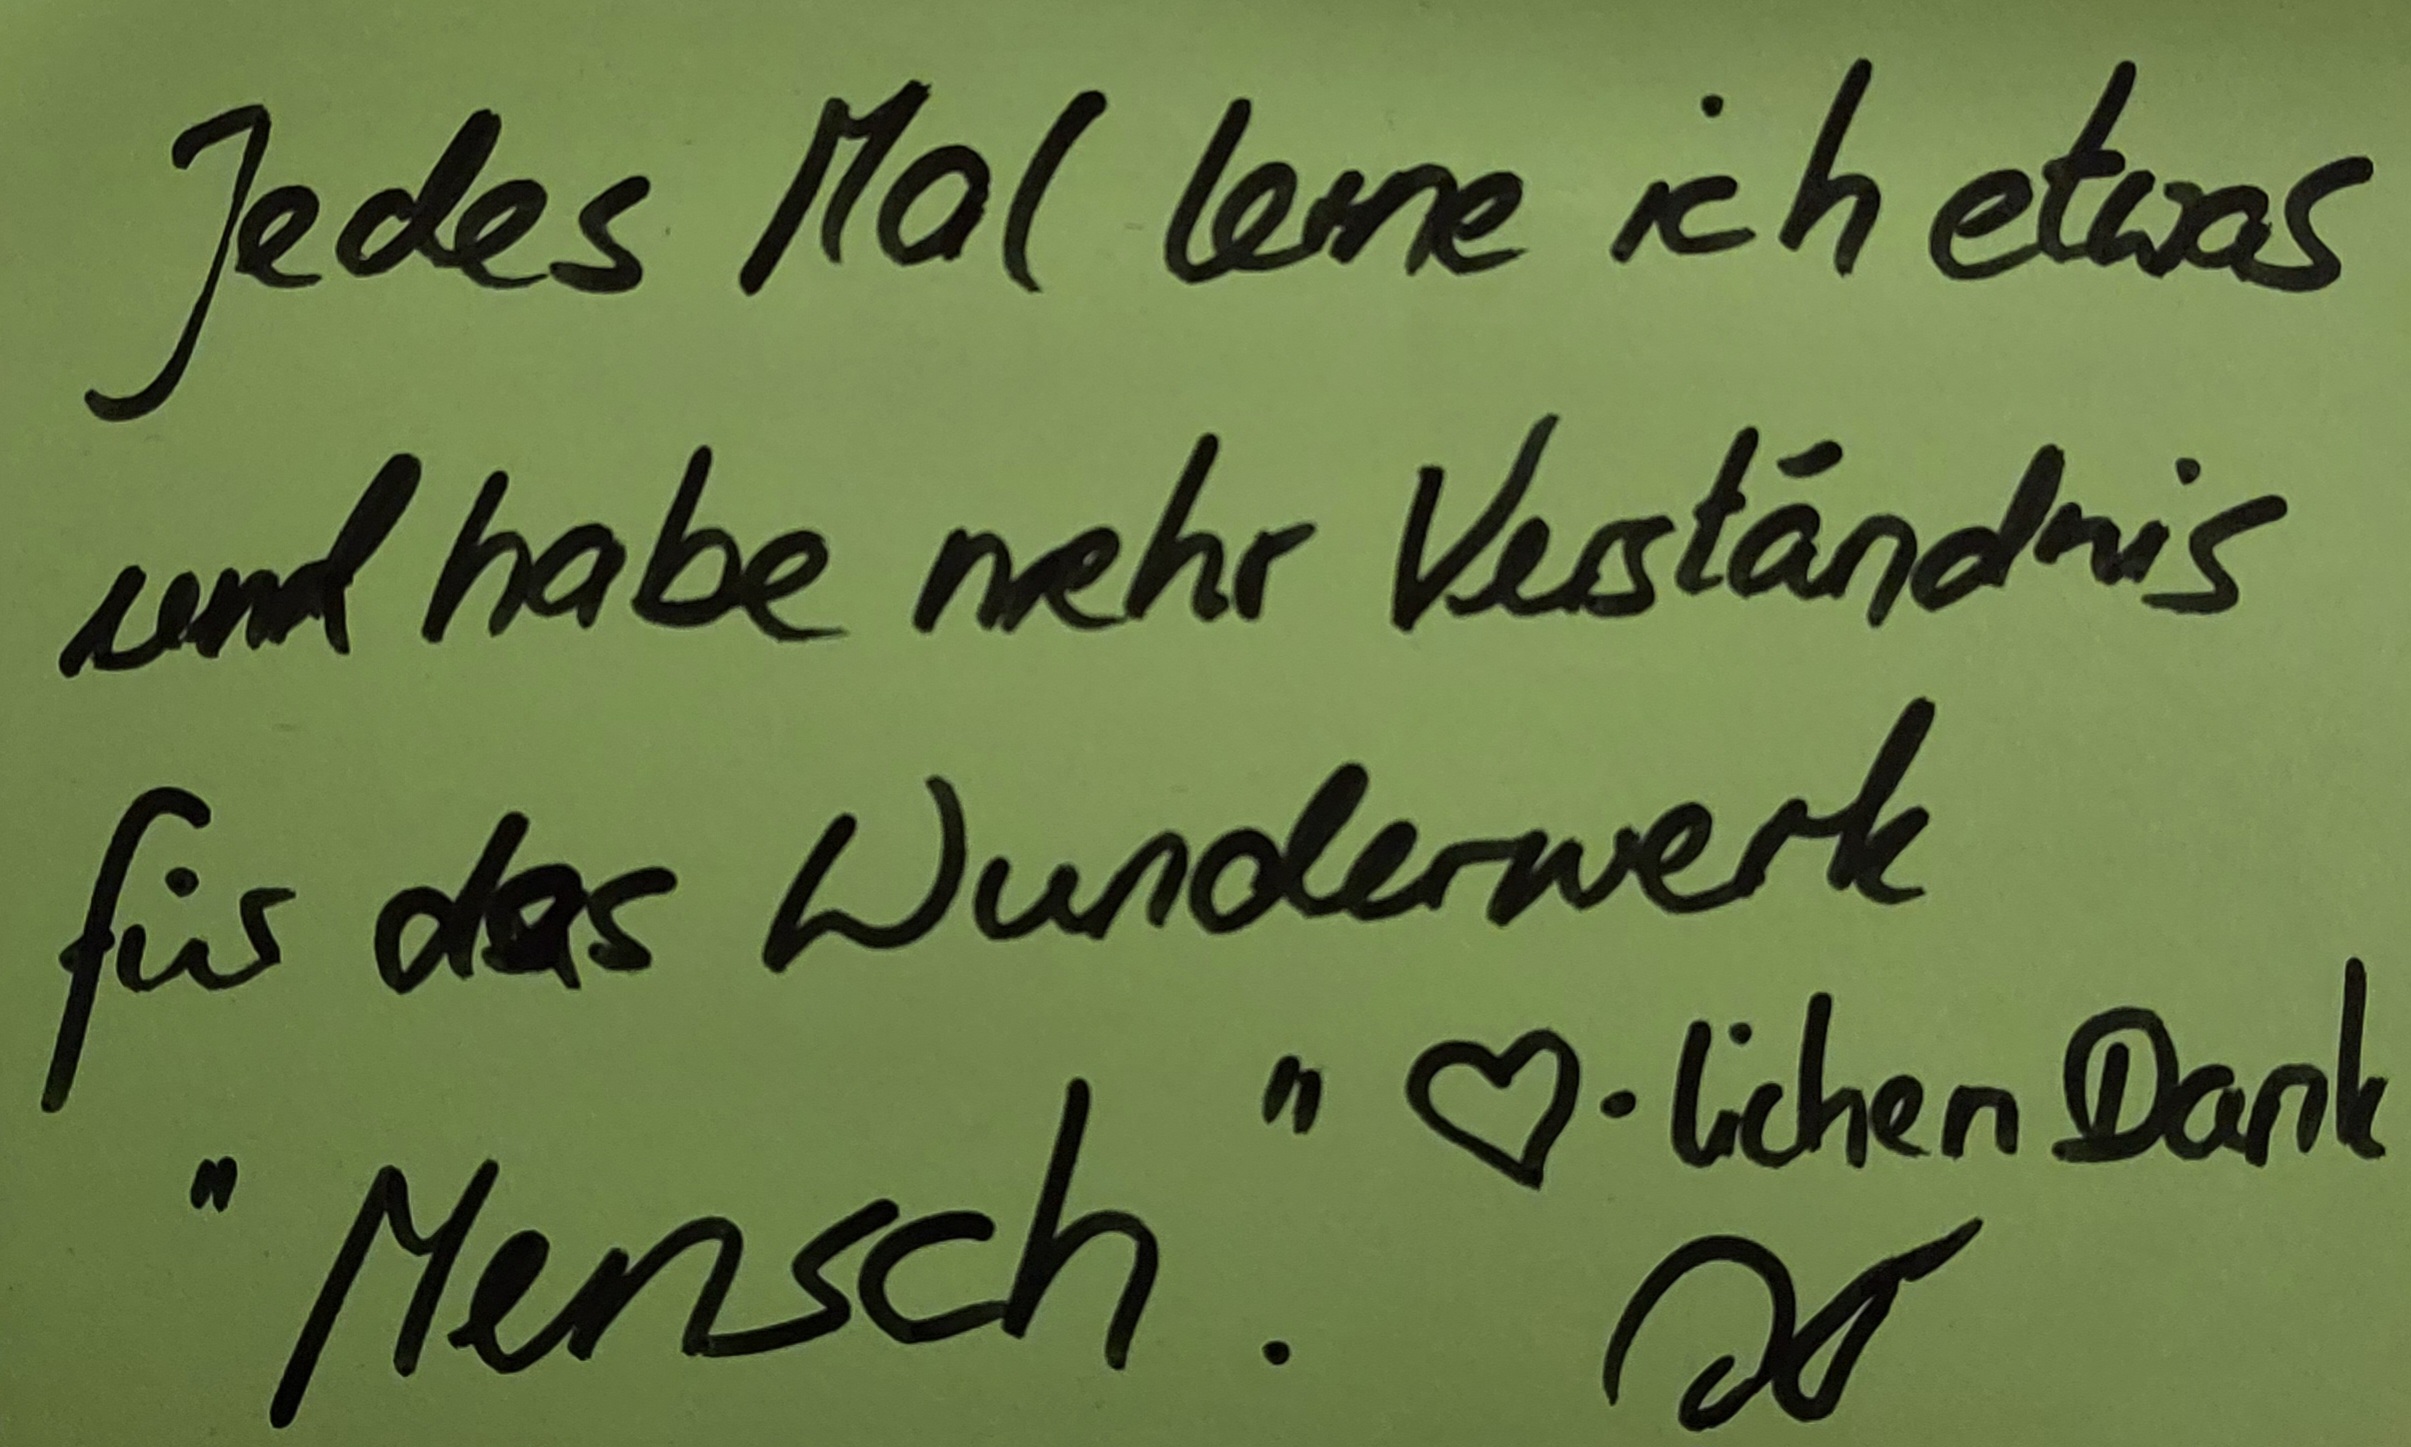 Jedes Mal lerne ich etwas
und habe mehr Verständnis
für das Wunderwerk
"Mensch".
♡·lichen Dank